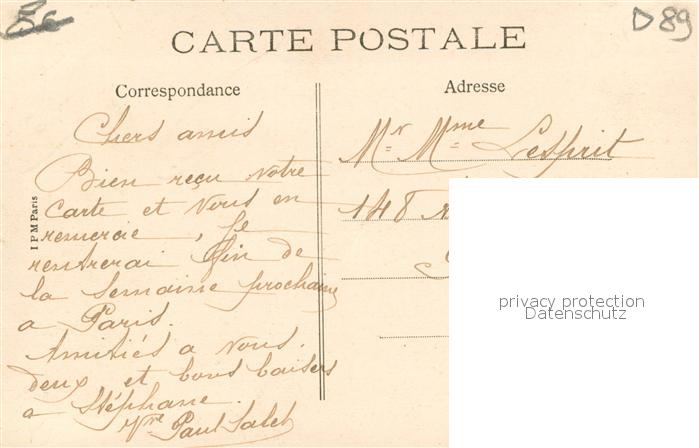 5c
D 89
CARTE POSTALE
Correspondance
Adresse
Chers amis
Bien reçu Notre
Carte et Vous en
remercie, Je
rentrerai fin de
la Semaine prochaine
a Paris.
Amitiés a Vous.
deux et bons baisers
a Stéphane.
Paul
Mr Mme Lesprit
148
IPM Paris
privacy protection
Datenschutz